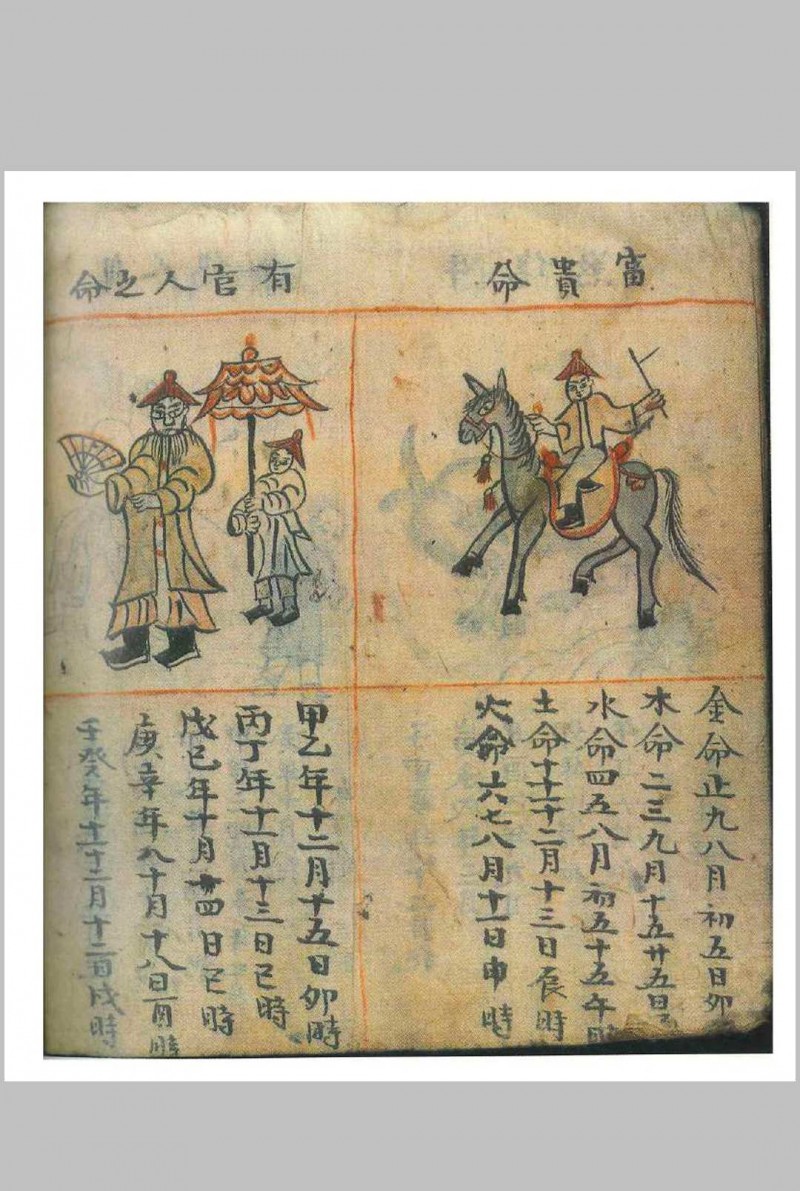 富貴命
金命正九八月初五日卯
木命二三九月十五廿五日
水命四五八月初五十五午時
土命十十一十二月十三日辰時
火命六七八月十一日申時
有官人之命
甲乙年十二月十五日卯時
丙丁年十一月十三日巳時
戊己年十月十四日巳時
庚辛年八十月十八日酉時
壬癸年十一十二月十二日戌時